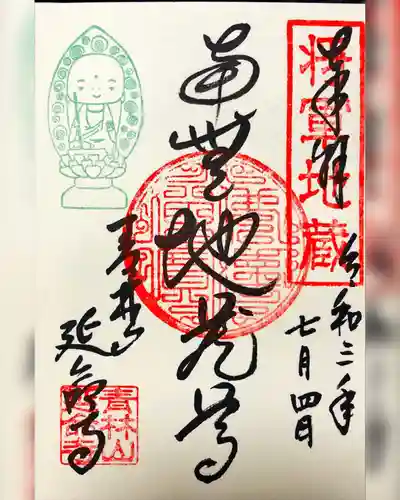 奉拝
将軍地蔵
令和三年
七月四日
南無地蔵尊
青林山
延命寺
青林山
延命寺